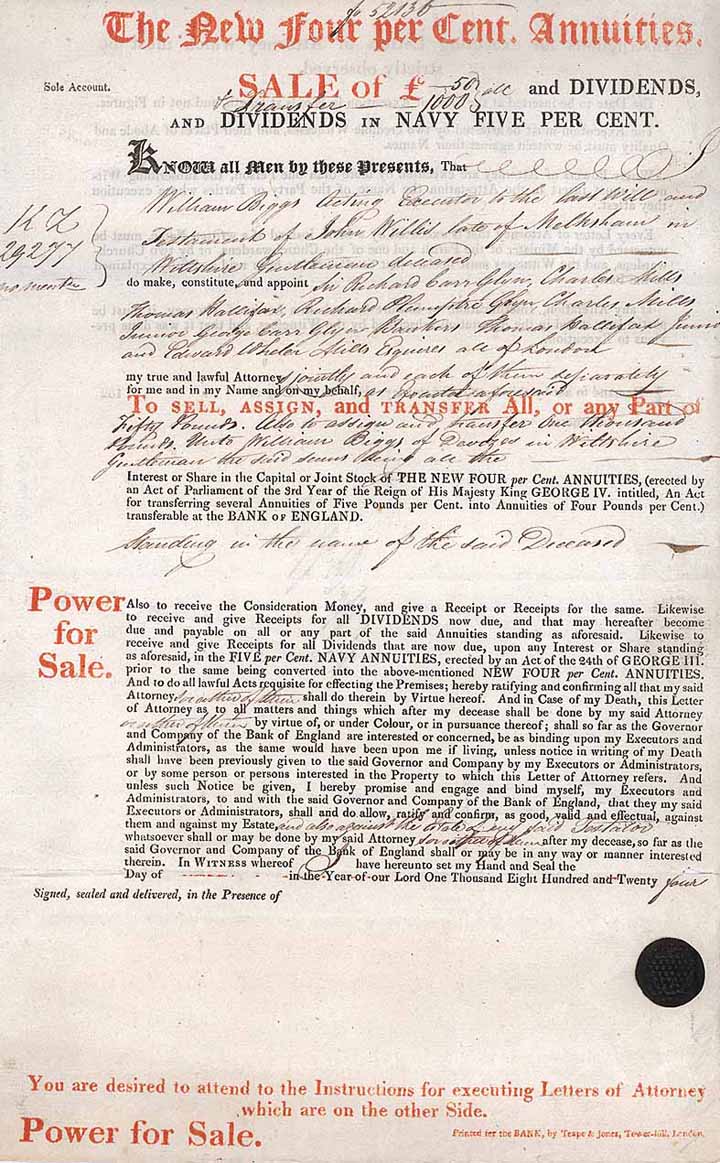 52136
The New Four per Cent. Annuities.
Sole Account.
SALE of £ 50 all and DIVIDENDS,
& Transfer 1000
AND DIVIDENDS IN NAVY FIVE PER CENT.
KNOW all Men by these Presents, That
William Biggs Acting Executor to the last Will and
Testament of John Willis late of Melksham in
Wiltshire Gentleman deceased
29277
do make, constitute, and appoint Richard Carr Glyn, Charles Mills
Thomas Hallifax, Richard Plumptre Glyn Charles Mills
Junior George Carr Glyn Bankers Thomas Hallifax Junr
and Edward Wheler Mills Esquires all of London
my true and lawful Attorneys jointly and each of them separately
for me and in my Name and on my behalf, as Executor aforesaid
To SELL, ASSIGN, and TRANSFER All, or any Part of
Fifty Pounds. Also to assign and transfer One thousand
Pounds. Unto William Biggs of Devizes in Wiltshire
Gentleman the said sums being all the
Interest or Share in the Capital or Joint Stock of THE NEW FOUR per Cent. ANNUITIES, (erected by
an Act of Parliament of the 3rd Year of the Reign of His Majesty King GEORGE IV. intitled, An Act
for transferring several Annuities of Five Pounds per Cent. into Annuities of Four Pounds per Cent.)
transferable at the BANK OF ENGLAND.
Standing in the name of the said Deceased
Power
for
Sale.
Also to receive the Consideration Money, and give a Receipt or Receipts for the same. Likewise
to receive and give Receipts for all DIVIDENDS now due, and that may hereafter become
due and payable on all or any part of the said Annuities standing as aforesaid. Likewise to
receive and give Receipts for all Dividends that are now due, upon any Interest or Share standing
as aforesaid, in the FIVE per Cent. NAVY ANNUITIES, erected by an Act of the 24th of GEORGE III.
prior to the same being converted into the above-mentioned NEW FOUR per Cent. ANNUITIES.
And to do all lawful Acts requisite for effecting the Premises; hereby ratifying and confirming all that my said
Attorneys or either of them shall do therein by Virtue hereof. And in Case of my Death, this Letter
of Attorney as to all matters and things which after my decease shall be done by my said Attorney
or either of them by virtue of, or under Colour, or in pursuance thereof; shall so far as the Governor
and Company of the Bank of England are interested or concerned, be as binding upon my Executors and
Administrators, as the same would have been upon me if living, unless notice in writing of my Death
shall have been previously given to the said Governor and Company by my Executors or Administrators,
or by some person or persons interested in the Property to which this Letter of Attorney refers. And
unless such Notice be given, I hereby promise and engage and bind myself, my Executors and
Administrators, to and with the said Governor and Company of the Bank of England, that they my said
Executors or Administrators, shall and do allow, ratify and confirm, as good, valid and effectual, against
them and against my Estate, and also against the Estate of my said Testator
whatsoever shall or may be done by my said Attorney or either of them after my decease, so far as the
said Governor and Company of the Bank of England shall or may be in any way or manner interested
therein. In WITNESS whereof I have hereunto set my Hand and Seal the
Day of in the Year of our Lord One Thousand Eight Hundred and Twenty four
Signed, sealed and delivered, in the Presence of
You are desired to attend to the Instructions for executing Letters of Attorney
which are on the other Side.
Power for Sale.
Printed for the BANK, by Teape & Jones, Tower-hill, London.